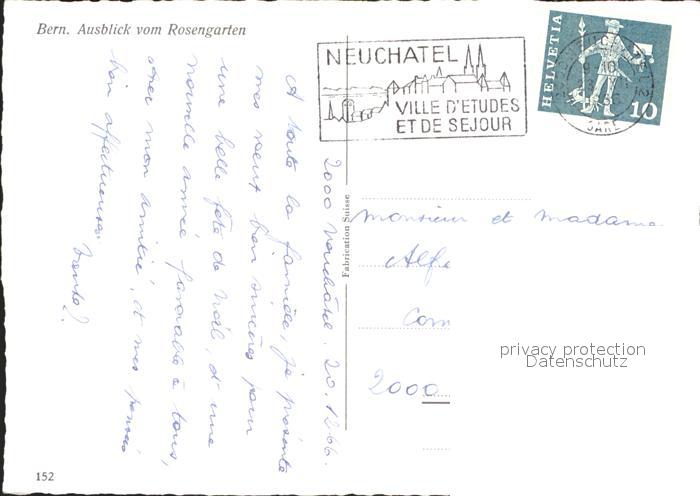 Bern. Ausblick vom Rosengarten
NEUCHATEL
VILLE D'ETUDES
ET DE SEJOUR
HELVETIA
10
GARE
2000 Neuchâtel. 20.12.66.
A toute la famille, je présente
mes vœux bien sincères pour
une belle fête de Noël, d'une
nouvelle année favorable à tous,
avec mon amitié, et mes pensées
bien affectueuses.
Fabrication Suisse
Monsieur et Madame
Alf
Com
2000
privacy protection
Datenschutz
152